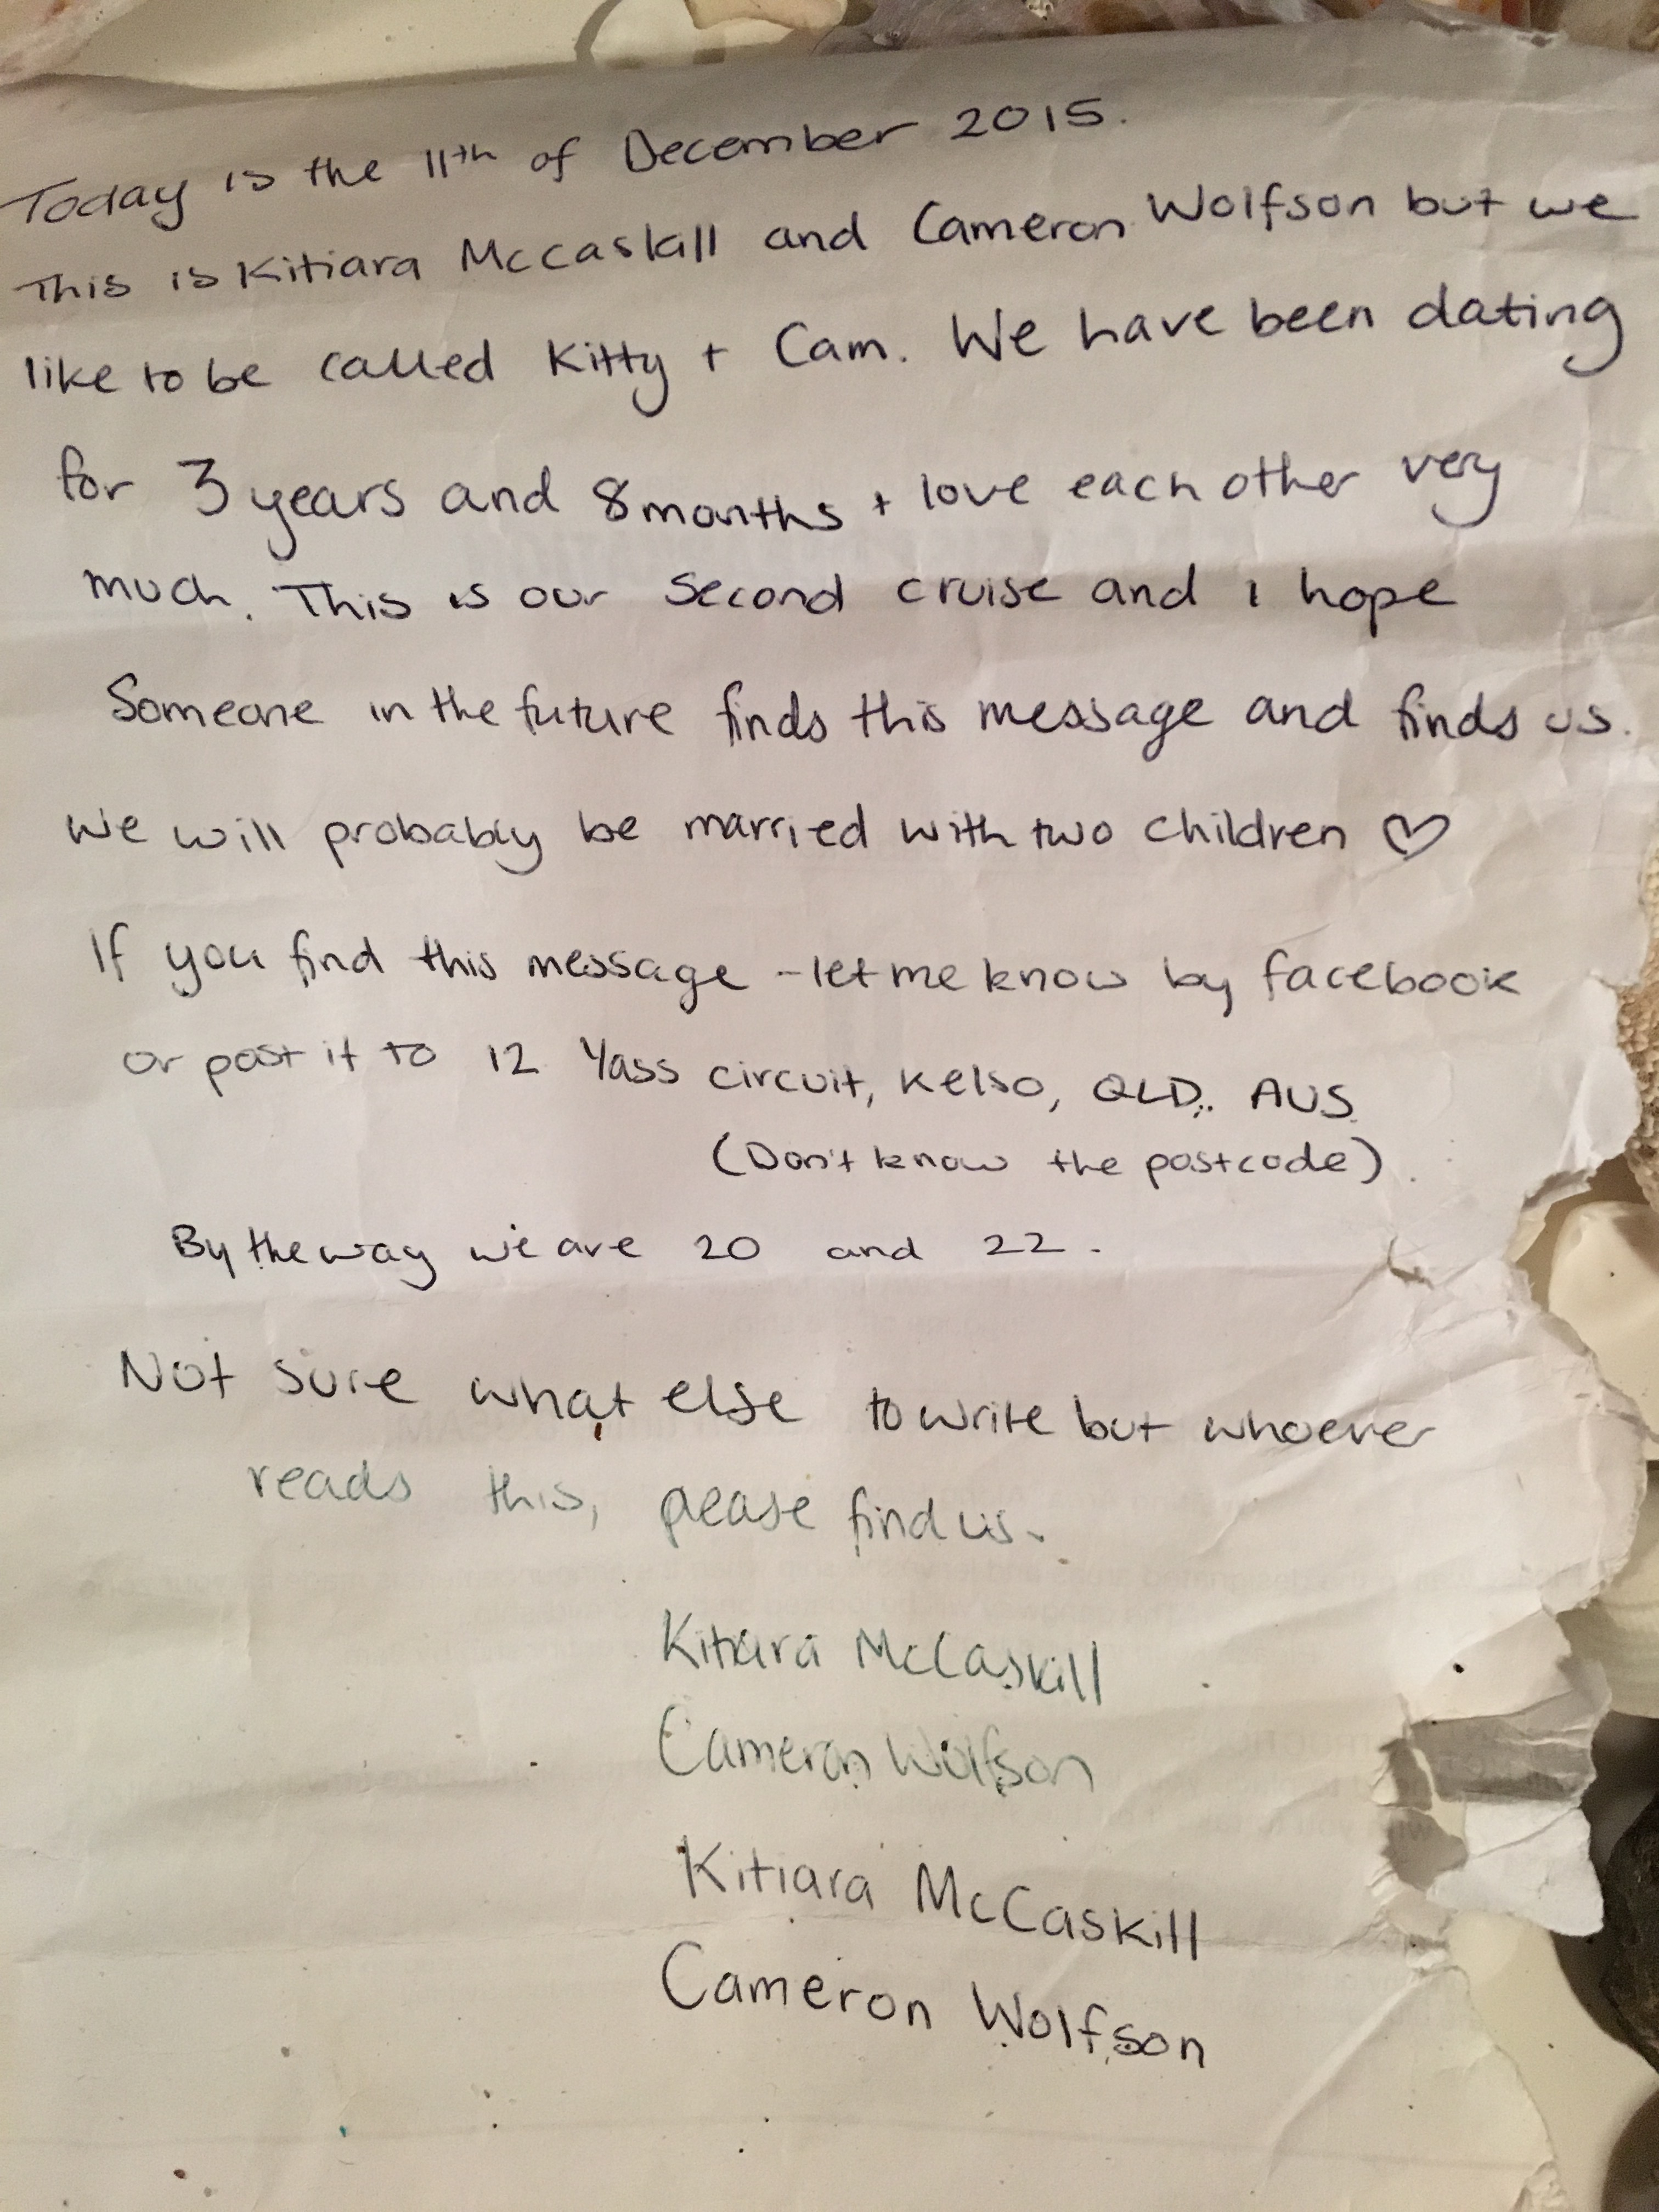 Today is the 11th of December 2015.
This is Kitiara Mccaskill and Cameron Wolfson but we
like to be called Kitty + Cam. We have been dating
for 3 years and 8 months + love each other very
much. This is our second cruise and I hope
Someone in the future finds this message and finds us.
We will probably be married with two children ♡
If you find this message - let me know by facebook
or post it to 12 Yass circuit, Kelso, QLD. AUS.
(Don't know the postcode).
By the way we are 20 and 22.
Not sure what else to write but whoever
reads this, please find us.
Kitiara McCaskill
Cameron Wolfson
Kitiara McCaskill
Cameron Wolfson